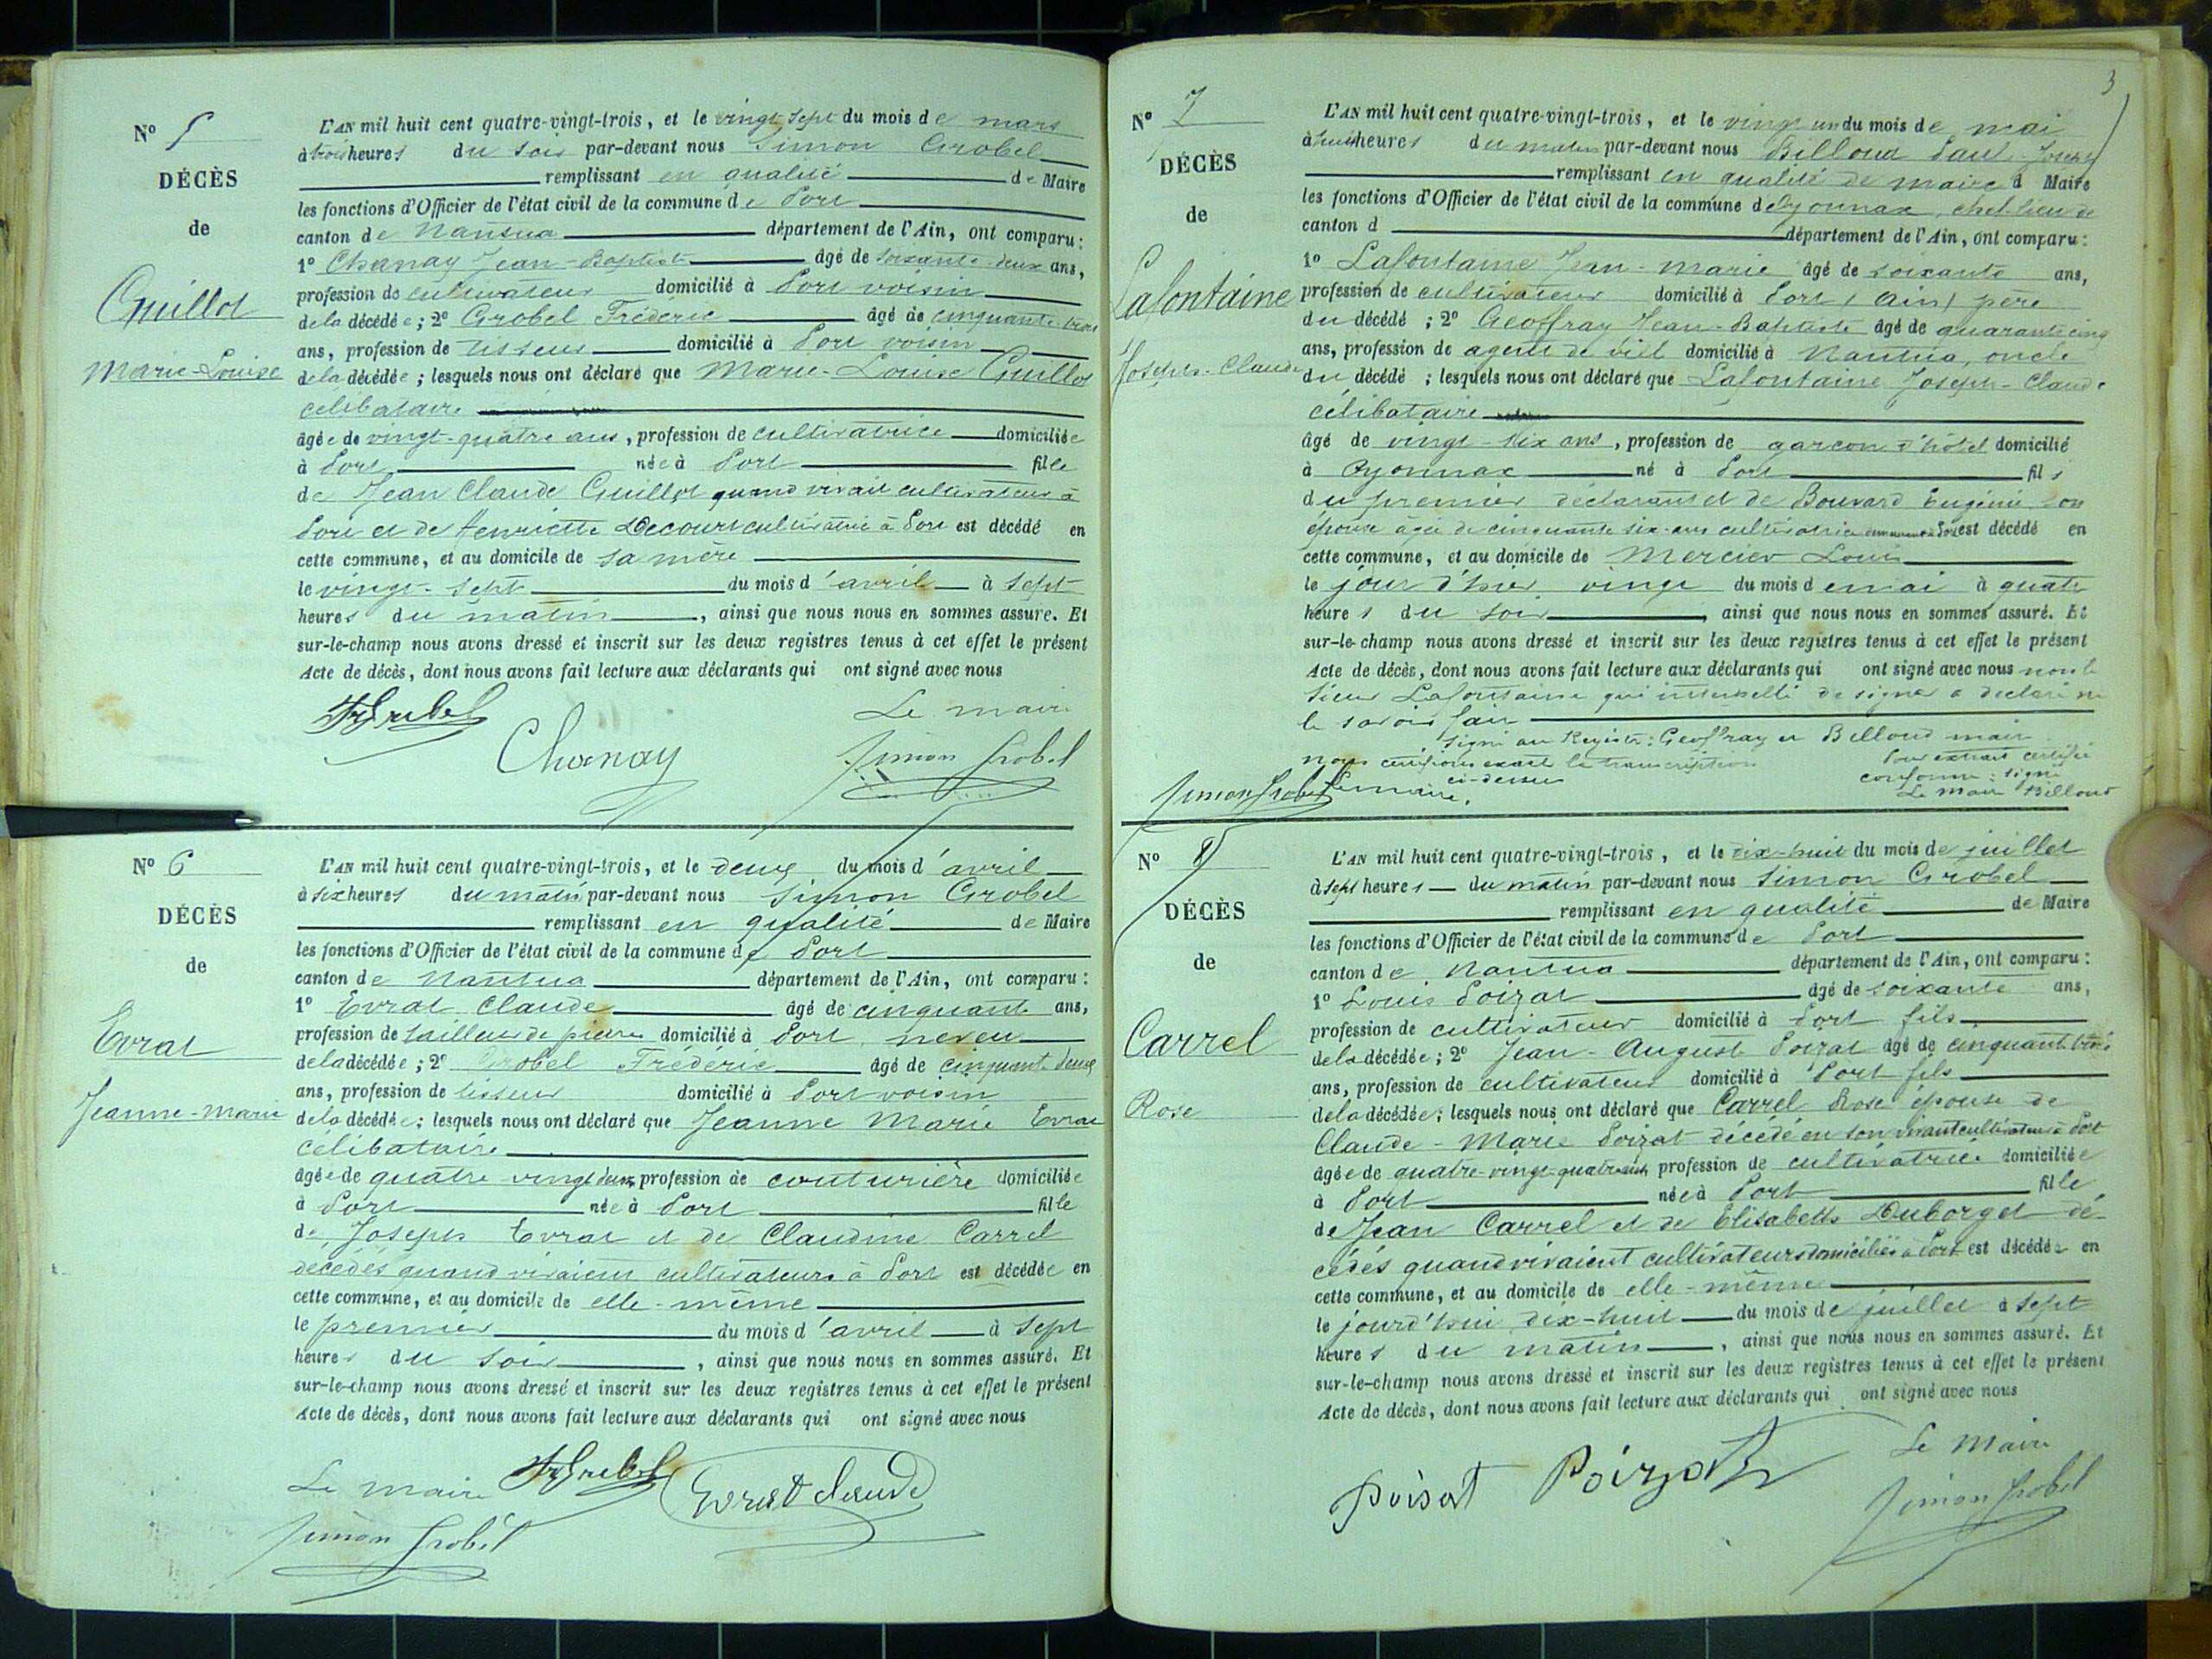 N° 5
DÉCÈS
de
Guillot
Marie-Louise
L'AN mil huit cent quatre-vingt-trois, et le vingt-sept du mois de mars
à trois heures du soir par-devant nous Simon Grobel
remplissant en qualité de Maire
les fonctions d'Officier de l'état civil de la commune de Port
canton de Nantua département de l'Ain, ont comparu:
1° Chanay Jean-Baptiste âgé de soixante-deux ans,
profession de cultivateur domicilié à Port voisin
de la décédée; 2° Grobel Fréderic âgé de cinquante trois
ans, profession de tisseur domicilié à Port voisin
de la décédée; lesquels nous ont déclaré que Marie-Louise Guillot
célibataire
âgée de vingt-quatre ans, profession de cultivatrice domiciliée
à Port née à Port fille
de Jean Claude Guillot quand vivait cultivateur à
Port et de Henriette Decours cultivatrice à Port est décédé en
cette commune, et au domicile de sa mère
le vingt-sept du mois d'avril à sept
heures du matin, ainsi que nous nous en sommes assuré. Et
sur-le-champ nous avons dressé et inscrit sur les deux registres tenus à cet effet le présent
Acte de décès, dont nous avons fait lecture aux déclarants qui ont signé avec nous
Le maire
Chanay
Simon Grobel
N° 6
DÉCÈS
de
Evrat
Jeanne-Marie
L'AN mil huit cent quatre-vingt-trois, et le deux du mois d'avril
à six heures du matin par-devant nous Simon Grobel
remplissant en qualité de Maire
les fonctions d'Officier de l'état civil de la commune de Port
canton de Nantua département de l'Ain, ont comparu:
1° Evrat Claude âgé de cinquante ans,
profession de tailleur de pierre domicilié à Port neveu
de la décédée; 2° Grobel Fréderic âgé de cinquante deux
ans, profession de tisseur domicilié à Port voisin
de la décédée; lesquels nous ont déclaré que Jeanne Marie Evrat
célibataire
âgée de quatre-vingt deux profession de couturière domiciliée
à Port née à Port fille
de Joseph Evrat et de Claudine Carrel
décédés quand vivaient cultivateurs à Port est décédée en
cette commune, et au domicile de elle-même
le premier du mois d'avril à sept
heures du soir, ainsi que nous nous en sommes assuré. Et
sur-le-champ nous avons dressé et inscrit sur les deux registres tenus à cet effet le présent
Acte de décès, dont nous avons fait lecture aux déclarants qui ont signé avec nous
Le maire
Evrat Claude
Simon Grobel
3
N° 7
DÉCÈS
de
Lafontaine
Joseph-Claude
L'AN mil huit cent quatre-vingt-trois, et le vingt un du mois de mai
à huit heures du matin par-devant nous Billoud Paul-Joseph
remplissant en qualité de maire d Maire
les fonctions d'Officier de l'état civil de la commune d'Oyonnax, chef-lieu de
canton d département de l'Ain, ont comparu:
1° Lafontaine Jean-Marie âgé de soixante ans,
profession de cultivateur domicilié à Port (Ain) père
du décédé; 2° Geoffray Jean-Baptiste âgé de quarante cinq
ans, profession de agent de ville domicilié à Nantua, oncle
du décédé; lesquels nous ont déclaré que Lafontaine Joseph-Claude
célibataire
âgé de vingt-six ans, profession de garçon d'hôtel domicilié
à Oyonnax né à Port fils
du premier déclarant et de Bouvard Eugénie son
épouse agée de cinquante six-ans cultivatrice demeurant à Port est décédé en
cette commune, et au domicile de Mercier Louis
le jour d'hier vingt du mois de mai à quatre
heures du soir, ainsi que nous nous en sommes assuré. Et
sur-le-champ nous avons dressé et inscrit sur les deux registres tenus à cet effet le présent
Acte de décès, dont nous avons fait lecture aux déclarants qui ont signé avec nous non le
sieur Lafontaine qui interpellé de signer a déclaré ne
le savoir faire
Signé au Registre: Geoffray et Billoud maire
Pour extrait certifié
conforme: signé
Le Maire Billoud
nous certifions exact la transcription
ci-dessus
Le maire,
Simon Grobel
N° 8
DÉCÈS
de
Carrel
Rose
L'AN mil huit cent quatre-vingt-trois, et le dix-huit du mois de juillet
à sept heures du matin par-devant nous Simon Grobel
remplissant en qualité de Maire
les fonctions d'Officier de l'état civil de la commune de Port
canton de Nantua département de l'Ain, ont comparu:
1° Louis Poizat âgé de soixante ans,
profession de cultivateur domicilié à Port fils
de la décédée; 2° Jean-Auguste Poizat âgé de cinquante trois
ans, profession de cultivateur domicilié à Port fils
de la décédée; lesquels nous ont déclaré que Carrel Rose épouse de
Claude-Marie Poizat décédé en son vivant cultivateur à Port
âgée de quatre-vingt-quatre ans, profession de cultivatrice domiciliée
à Port née à Port fille
de Jean Carrel et de Elisabeth Duborget dé-
cédés quand vivaient cultivateurs domiciliés à Port est décédée en
cette commune, et au domicile de elle-même
le jourd'hui dix-huit du mois de juillet à sept
heures du matin, ainsi que nous nous en sommes assuré. Et
sur-le-champ nous avons dressé et inscrit sur les deux registres tenus à cet effet le présent
Acte de décès, dont nous avons fait lecture aux déclarants qui ont signé avec nous
Le Maire
Poisat Poizat
Simon Grobel